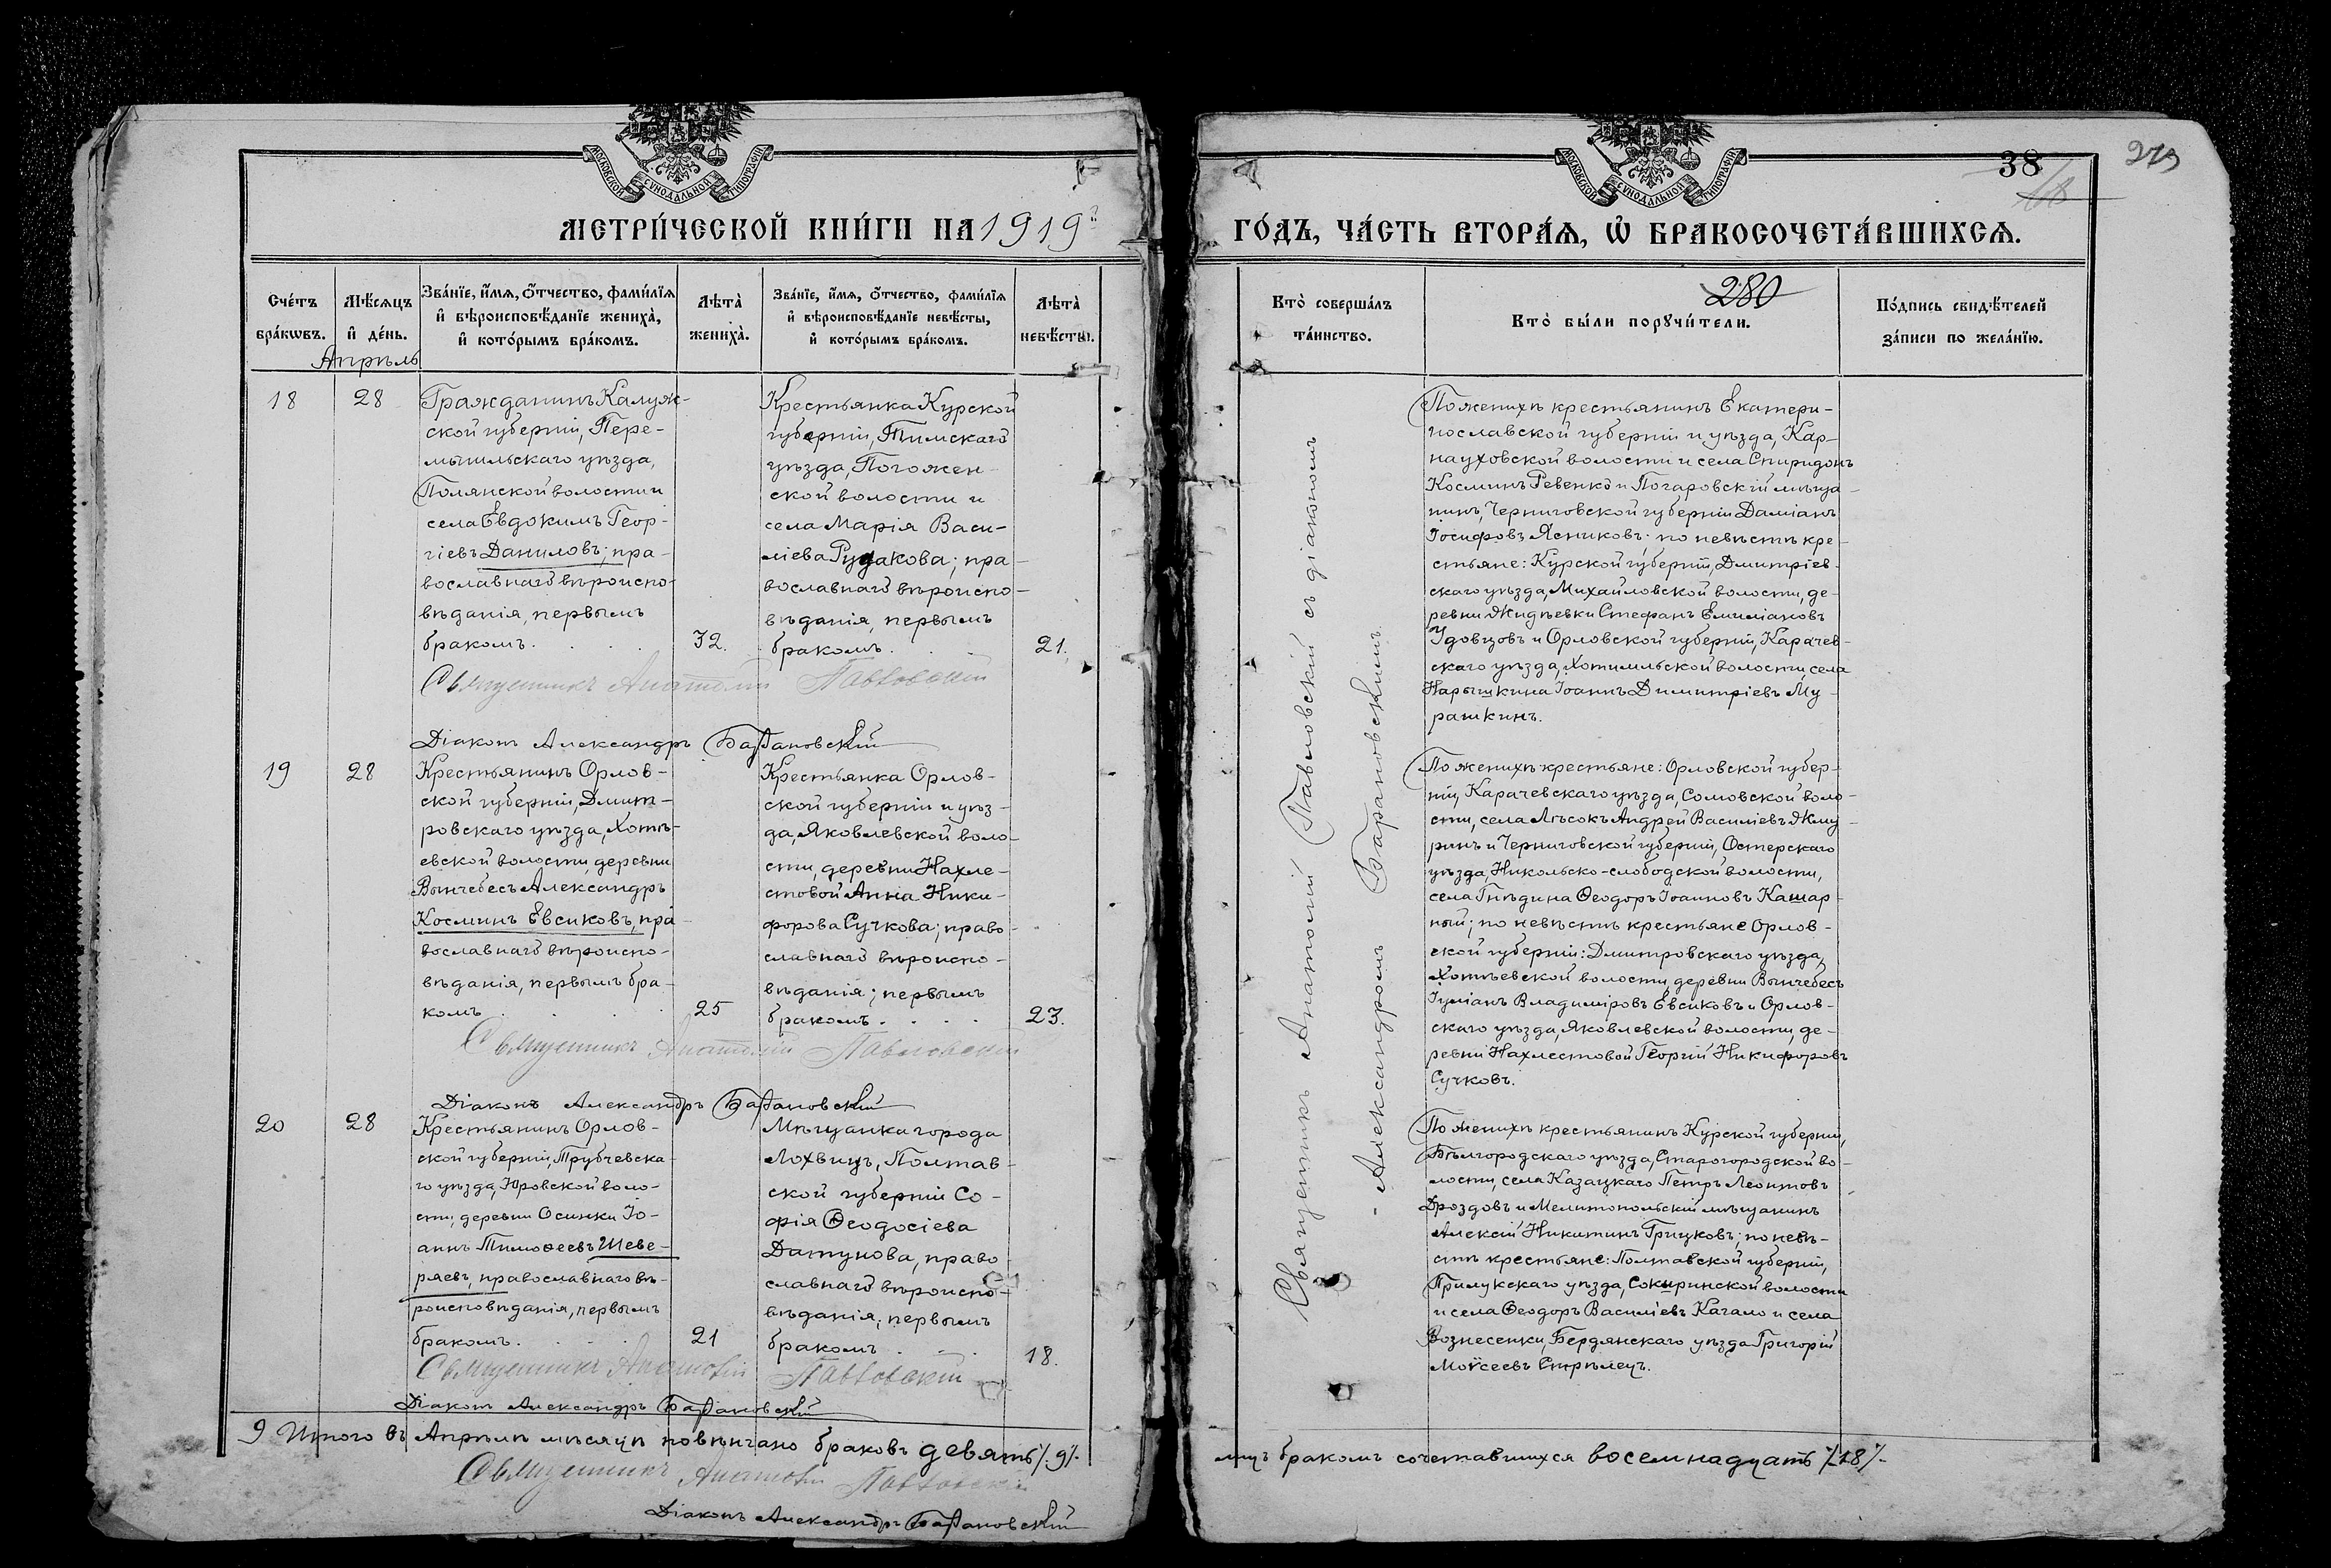 МОСКОВСКОЙ СѴНОДАЛЬНОЙ ТИПОГРАФІИ
МЕТРИ́ЧЕСКОЙ КНИ́ГИ НА 1919й
Сче́тъ бра́кѡвъ.
Мѣ́сяцъ и҆ де́нь.
Зва́нїе, и҆́мя, ѻ҆́тчество, фами́лїя и҆ вѣроисповѣ́данїе жениха̀, и҆ кото́рымъ бра́комъ.
Лѣта̀ жениха̀.
Зва́нїе, и҆́мя, ѻ҆́тчество, фами́лїя и҆ вѣроисповѣ́данїе невѣ́сты, и҆ кото́рымъ бра́комъ.
Лѣта̀ невѣ́сты.
Апрѣль
18
28
Гражданинъ Калуж-
ской губерніи, Пере-
мышльскаго уѣзда,
Полянской волости и
села Евдокимъ Геор-
гіевъ Даниловъ; пра-
вославнаго вѣроиспо-
вѣданія, первымъ
бракомъ.
32.
Крестьянка Курской
губерніи, Тимскаго
уѣзда, Погожен-
ской волости и
села Марія Васи-
ліева Рудакова; пра-
вославнаго вѣроиспо-
вѣданія, первымъ
бракомъ.
21.
Священникъ Анатолій Павловскій
Діаконъ Александръ Барановскій
19
28
Крестьянинъ Орлов-
ской губерніи, Дмит-
ровскаго уѣзда, Хотѣ-
евской волости, деревни
Вынчебесъ Александръ
Косминъ Евсиковъ, пра-
вославнаго вѣроиспо-
вѣданія, первымъ бра-
комъ.
25
Крестьянка Орлов-
ской губерніи и уѣз-
да, Яковлевской воло-
сти, деревни Нахле-
стовой Анна Ники-
форова Сучкова; право-
славнаго вѣроиспо-
вѣданія; первымъ
бракомъ.
23.
Священникъ Анатолій Павловскій
Діаконъ Александръ Барановскій
20
28
Крестьянинъ Орлов-
ской губерніи, Трубчевска-
го уѣзда, Юровской воло-
сти, деревни Осинки Іо-
аннъ Тимоѳеевъ Шеве-
ряевъ, православнаго вѣ-
роисповѣданія, первымъ
бракомъ.
21
Мѣщанка города
Лохвицъ, Полтав-
ской губерніи Со-
фія Ѳеодосіева
Датунова, право-
славнаго вѣроиспо-
вѣданія, первымъ
бракомъ
18.
Священникъ Анатолій Павловскій
Діаконъ Александръ Барановскій
9 Итого въ Апрѣлѣ мѣсяцѣ повѣнчано браковъ девять /.9/.
Священникъ Анатолій Павловскій
Діаконъ Александръ Барановскій
МОСКОВСКОЙ СѴНОДАЛЬНОЙ ТИПОГРАФІИ
38
279
ГО́ДЪ, ЧА́СТЬ ВТОРА́Я, Ѡ҆ БРАКОСОЧЕТА́ВШИХСЯ.
280
Кто̀ соверша́лъ та́инство.
Кто̀ бы́ли порꙋчи́тели.
По́дпись свидѣ́телей за́писи по жела́нїю.
Священникъ Анатолій Павловскій съ діакономъ
- Александромъ Барановскимъ.
По женихѣ крестьянинъ Екатери-
нославской губерніи и уѣзда, Кар-
науховской волости и села Спиридонъ
Косминъ Ревенко и Погаровскій мѣща-
нинъ, Черниговской губерніи Даміанъ
Іосифовъ Ясниковъ; по невѣстѣ кре-
стьяне: Курской губерніи, Дмитріев-
скаго уѣзда, Михайловской волости, де-
ревни Жидѣевки Стефанъ Емиліановъ
Удовцовъ и Орловской губерніи, Карачев-
скаго уѣзда, Хотимльской волости, села
Нарышкина Іоаннъ Димитріевъ Му-
рашкинъ.
По женихѣ крестьяне: Орловской губер-
ніи, Карачевскаго уѣзда, Сомовской воло-
сти, села Лѣсокъ Андрей Василіевъ Жму-
ринъ и Черниговской губерніи, Остерскаго
уѣзда, Никольско-слободской волости,
села Гнѣдина Ѳеодоръ Іоанновъ Кашар-
ный; по невѣстѣ крестьяне Орлов-
ской губерніи: Дмитровскаго уѣзда,
Хотѣевской волости, деревни Вынчебесъ
Іуліанъ Владиміровъ Евсиковъ и Орлов-
скаго уѣзда, Яковлевской волости, де-
ревни Нахлестовой Георгій Никифоровъ
Сучковъ.
По женихѣ крестьянинъ Курской губерніи,
Бѣлгородскаго уѣзда, Старогородской во-
лости, села Казацкаго Петръ Леонтовъ
Дроздовъ и Мелитопольскій мѣщанинъ
Алексій Никитинъ Грицковъ; по невѣ-
стѣ крестьяне: Полтавской губерніи,
Прилукскаго уѣзда, Сокиринской волости
и села Ѳеодоръ Василіевъ Качало и села
Вознесенки, Бердянскаго уѣзда Григорій
Моѵсеевъ Стрѣлец.
лицъ бракомъ сочетавшихся восемнадцать /.18/.